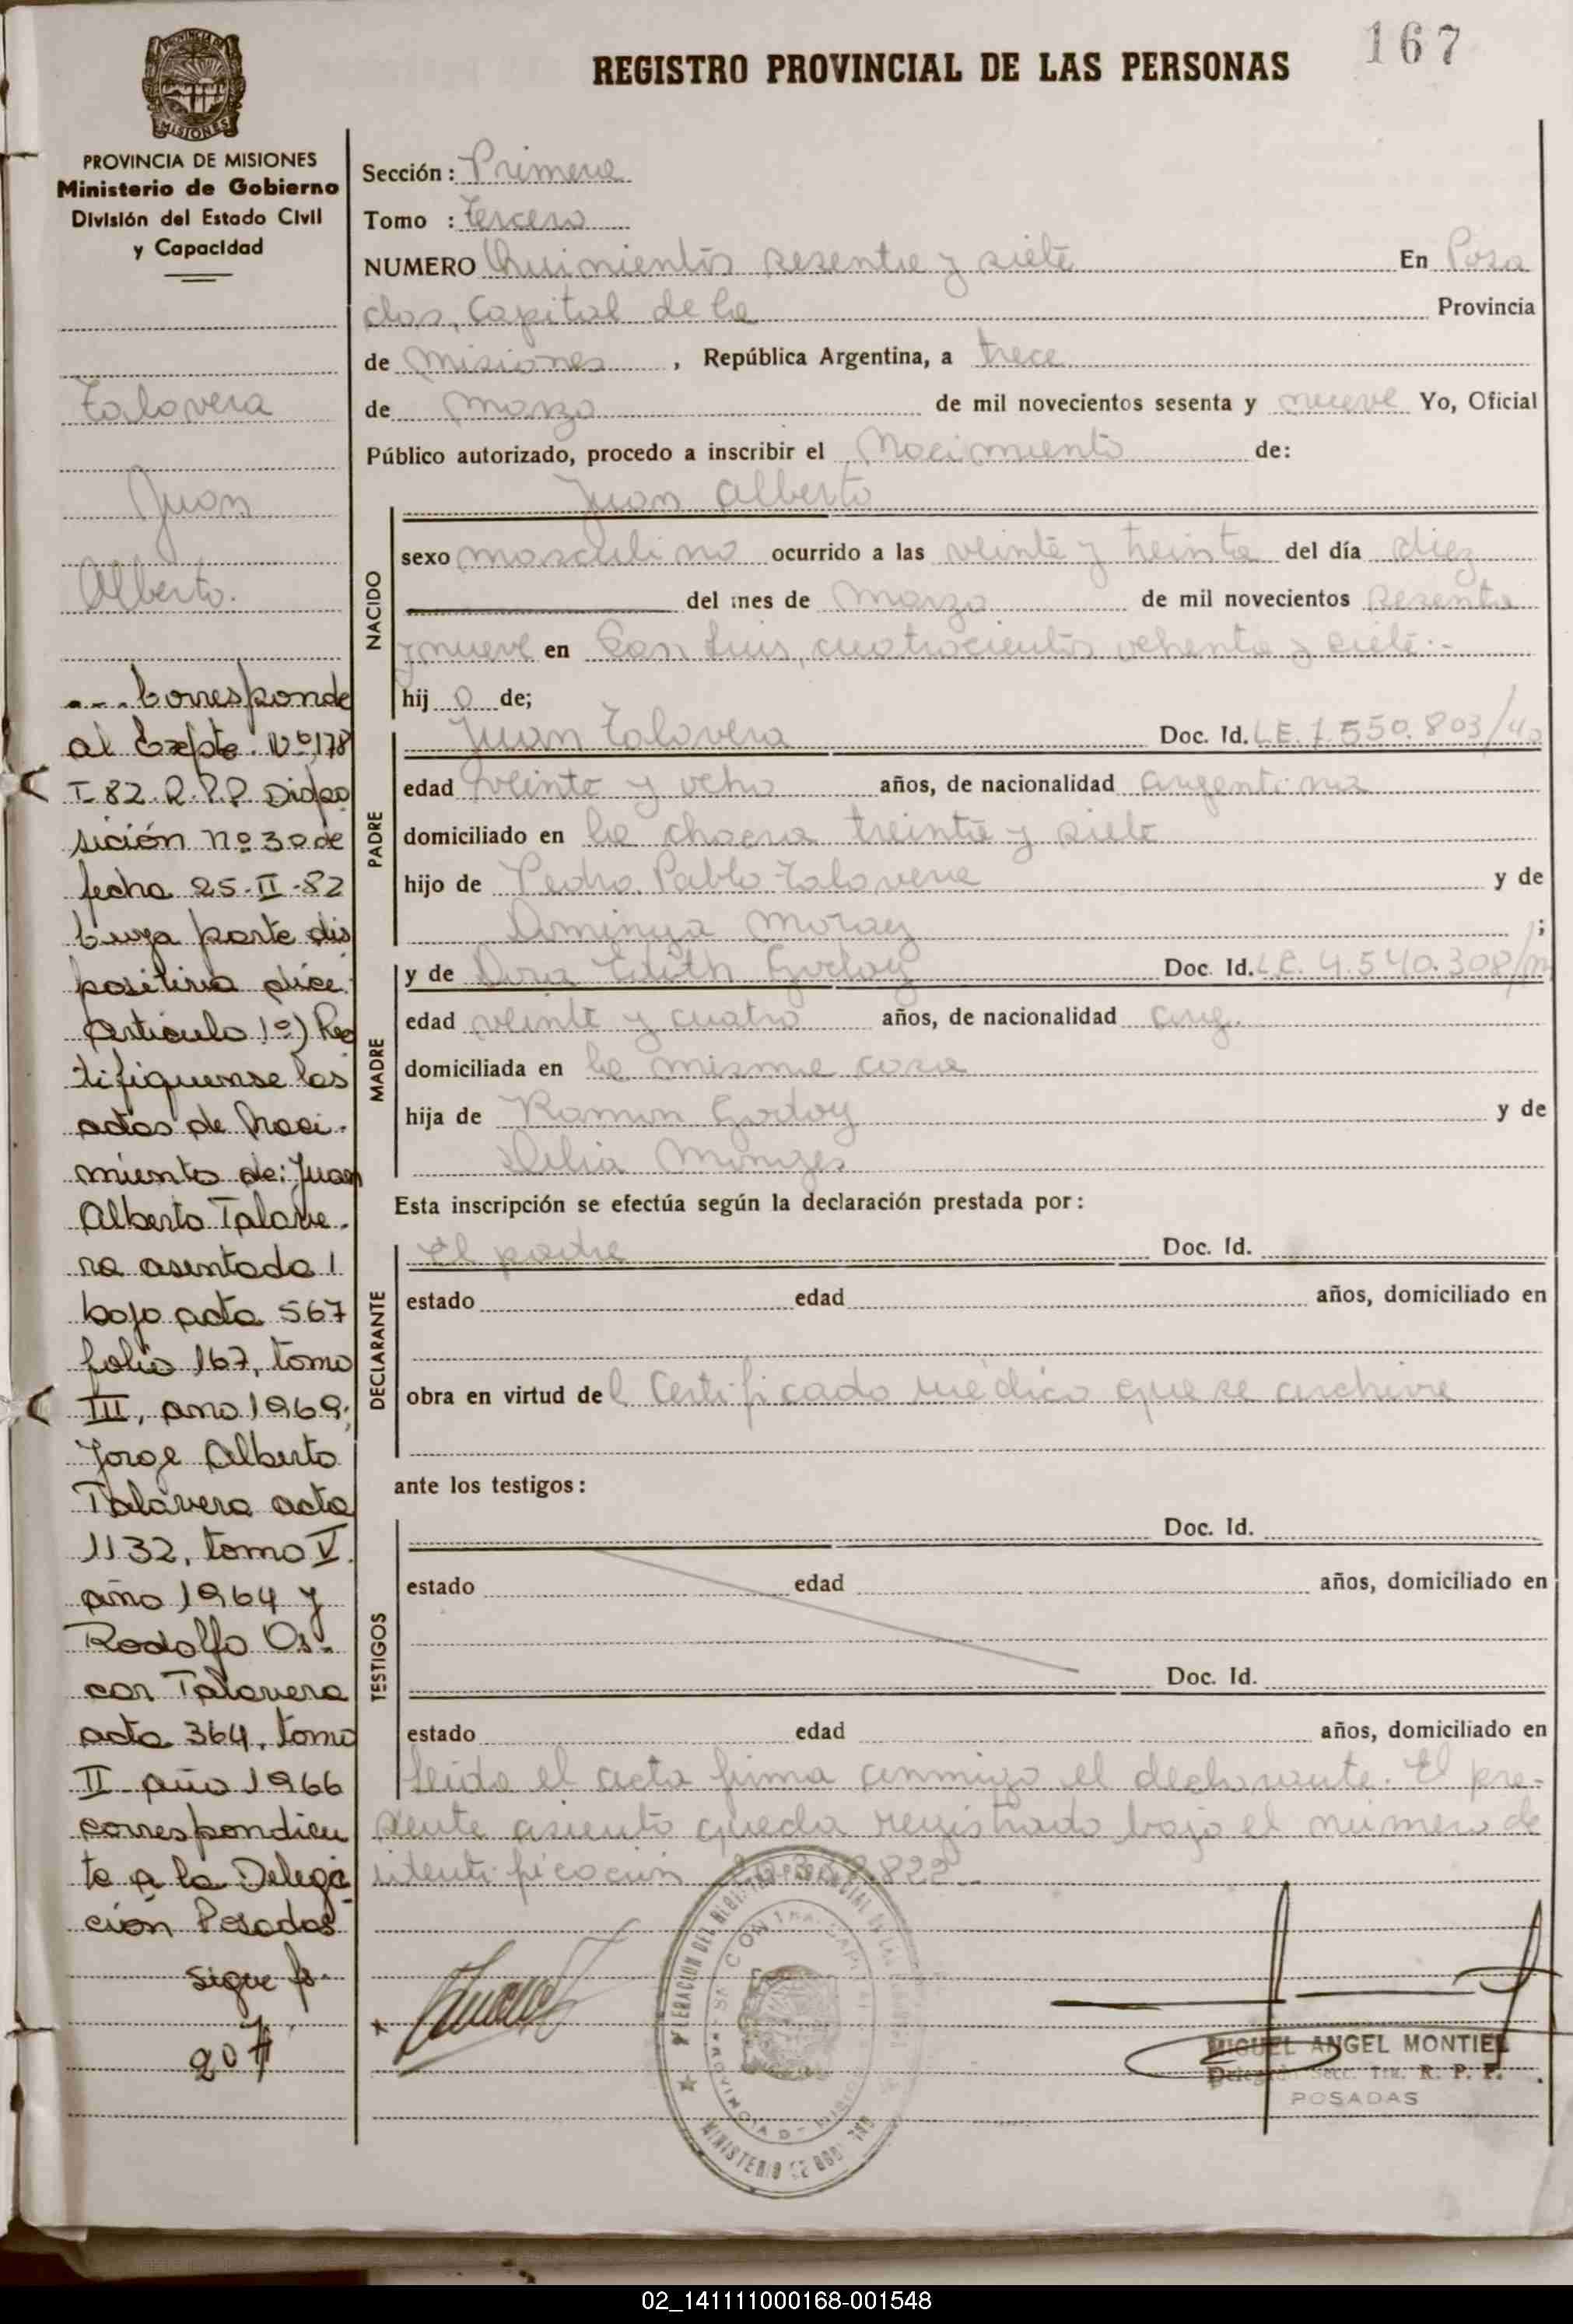 167
REGISTRO PROVINCIAL DE LAS PERSONAS
MISIONES
PROVINCIA DE MISIONES
Ministerio de Gobierno
División del Estado Civil
y Capacidad
Talavera
Juan
Alberto.
.... Corresponde
al Expte. Nº 178
I-82 R.P.P. Dispo
sición nº 30 de
fecha 25-II-82
Cuya parte dis
positiva dice:
Artículo 1º) Rec
tifiquense las
actas de Naci-
miento de: Juan
Alberto Talave-
ra asentada
bajo acta 567
folio 167, tomo
III, año 1969;
Jorge Alberto
Talavera acta
1132, tomo V.
año 1964 y
Rodolfo Os-
car Talavera
acta 364, tomo
II año 1966
correspondien
te a la Delega
ción Posadas
sigue fo.
207
Sección: Primera
Tomo : Tercero
NUMERO Quinientos sesenta y siete En Posa
das, Capital de la Provincia
de Misiones, República Argentina, a trece
de Marzo de mil novecientos sesenta y nueve Yo, Oficial
Público autorizado, procedo a inscribir el Nacimiento de:
Juan Alberto
NACIDO
sexo masculino ocurrido a las veinte y treinta del día diez
del mes de Marzo de mil novecientos sesenta
y nueve en San Luis, cuatrocientos ochenta y siete.-
hij o de;
PADRE
Juan Talavera Doc. Id. L.E. 7.550.803/40
edad veinte y ocho años, de nacionalidad argentina
domiciliado en la chacra treinta y siete
hijo de Pedro Pablo Talavera y de
;
MADRE
y de Dora Edith Godoy Doc. Id. L.C. 4.540.308/m
edad veinte y cuatro años, de nacionalidad arg.
domiciliada en la misma casa
hija de Ramon Godoy y de
Delia
Esta inscripción se efectúa según la declaración prestada por:
DECLARANTE
El padre Doc. Id.
estado edad años, domiciliado en
obra en virtud del Certificado médico que se archiva
ante los testigos:
TESTIGOS
Doc. Id.
estado edad años, domiciliado en
Doc. Id.
estado edad años, domiciliado en
Leida el acta firma conmigo el declarante. El pre-
sente asiento queda registrado bajo el número de
identificación
MINISTERIO DE GOB
MIGUEL ANGEL MONTIEL
Delegado Secc. 1ra. R. P. P.
POSADAS
02_141111000168-001548